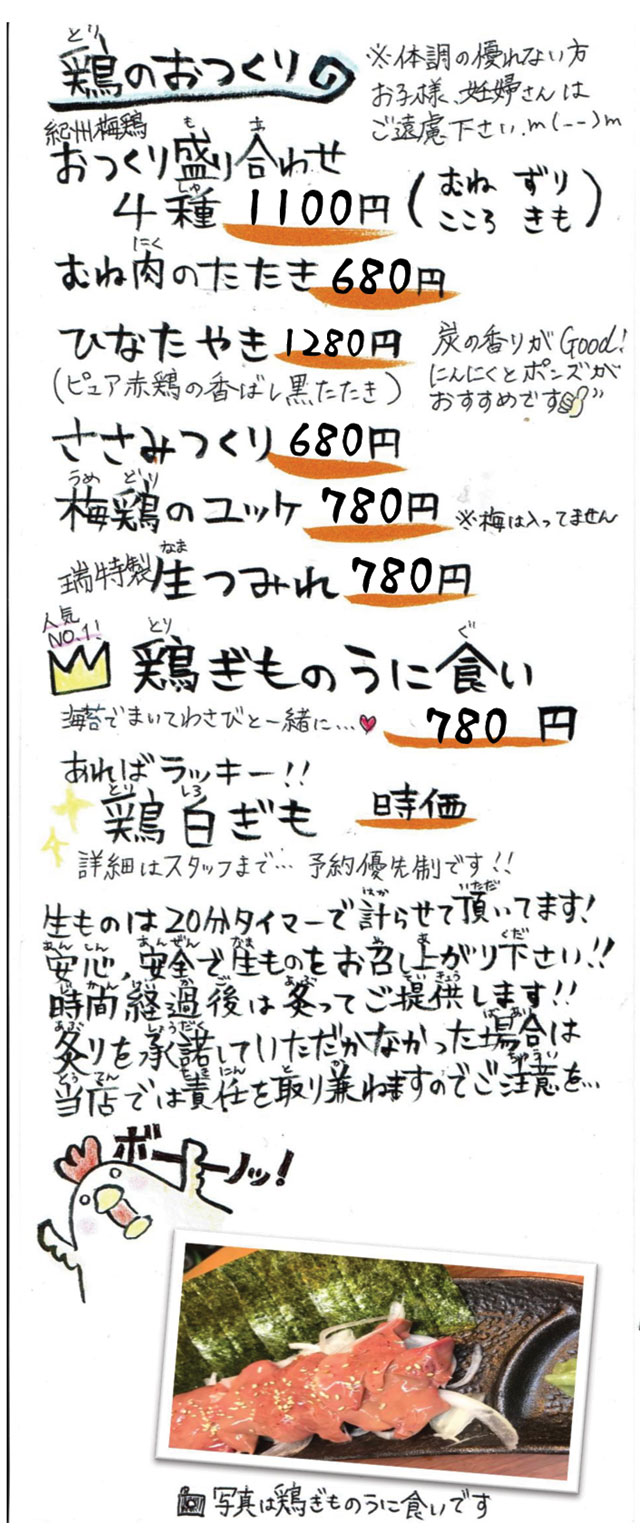 鶏のおつくり
※体調の優れない方
お子様、妊婦さんは
ご遠慮下さい.m(--)m
紀州梅鶏
おつくり盛り合わせ
4種 1100円 (むね ずり
こころ きも)
むね肉のたたき 680円
ひなたやき 1280円
(ピュア赤鶏の香ばし黒たたき)
炭の香りがGood!
にんにくとポンズが
おすすめです
ささみつくり 680円
梅鶏のユッケ 780円 ※梅は入ってません
瑞特製 生つみれ 780円
人気
NO.1!
鶏ぎものうに食い
海苔でまいてわさびと一緒に… 780円
あればラッキー!!
鶏白ぎも 時価
詳細はスタッフまで… 予約優先制です!!
生ものは20分タイマーで計らせて頂いてます!
安心、安全で生ものをお召し上がり下さい!!
時間経過後は炙ってご提供します!!
炙りを承諾していただかなかった場合は
当店では責任を取り兼ねますのでご注意を…
ボーーノッ!
写真は鶏ぎものうに食いです